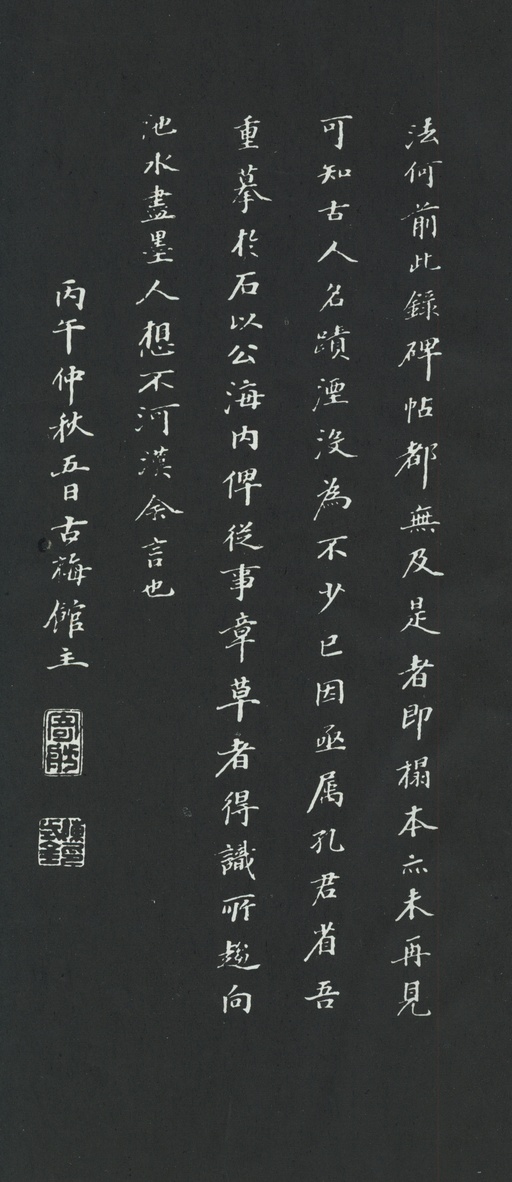 法何前此錄碑帖都無及是者即榻本亦未再見
可知古人名蹟湮沒為不少已因亟属孔君省吾
重摹於石以公海内俾従事章草者得識所趍向
池水盡墨人想不河漢余言也
丙午仲秋五日古梅館主